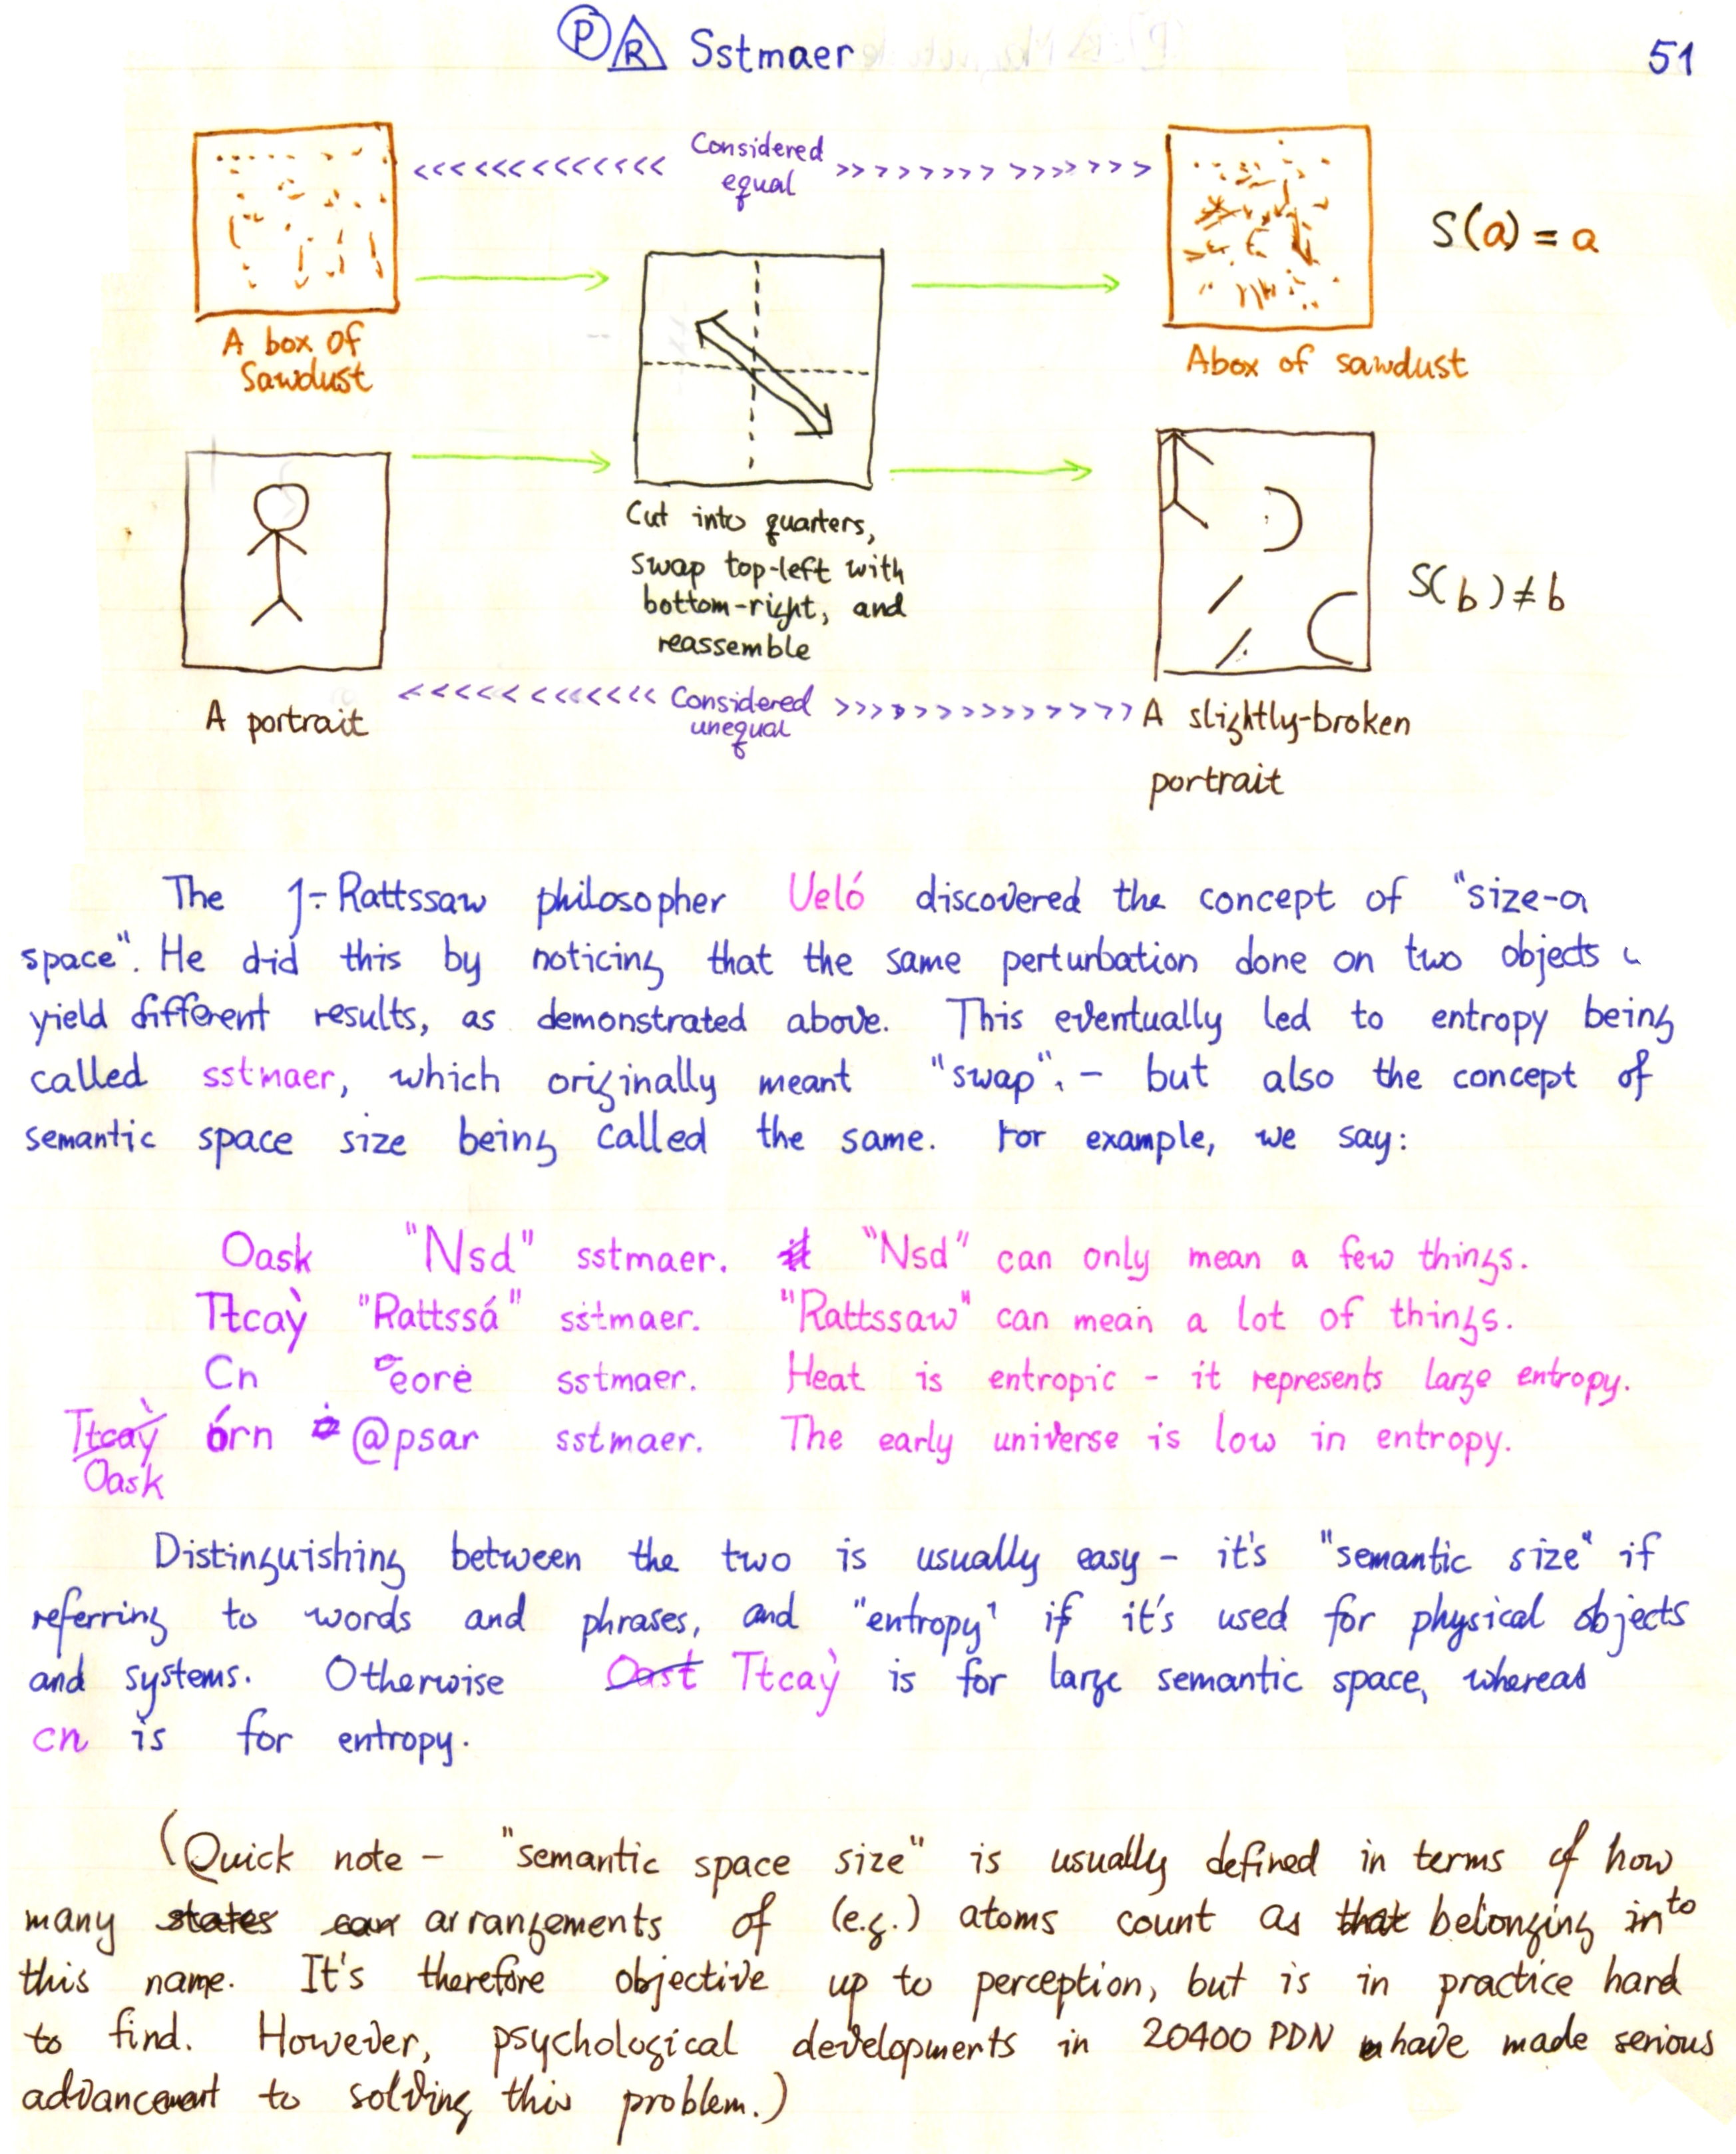 P R Sstmaer
51
Considered
equal
S(a) = a
A box of
Sawdust
Abox of sawdust
Cut into quarters,
swap top-left with
bottom-right, and
reassemble
S(b) ≠ b
Considered
unequal
A portrait
A slightly-broken
portrait
The Rattssaw philosopher Ueló discovered the concept of "size-
space". He did this by noticing that the same perturbation done on two objects
yield different results, as demonstrated above. This eventually led to entropy being
called sstmaer, which originally meant "swap". - but also the concept of
semantic space size being called the same. For example, we say:
Oask "Nsd" sstmaer. "Nsd" can only mean a few things.
Ttcaỳ "Rattssá" sstmaer. "Rattssaw" can mean a lot of things.
Cn eorė sstmaer. Heat is entropic - it represents large entropy.
Ttcaỳ órn @psar sstmaer. The early universe is low in entropy.
Oask
Distinguishing between the two is usually easy - it's "semantic size" if
referring to words and phrases, and "entropy" if it's used for physical objects
and systems. Otherwise Oast Ttcaỳ is for large semantic space, whereas
cn is for entropy.
(Quick note - "semantic space size" is usually defined in terms of how
many states can arrangements of (e.g.) atoms count as that belonging into
this name. It's therefore objective up to perception, but is in practice hard
to find. However, psychological developments in 20400 PDN have made serious
advancement to solving this problem.)